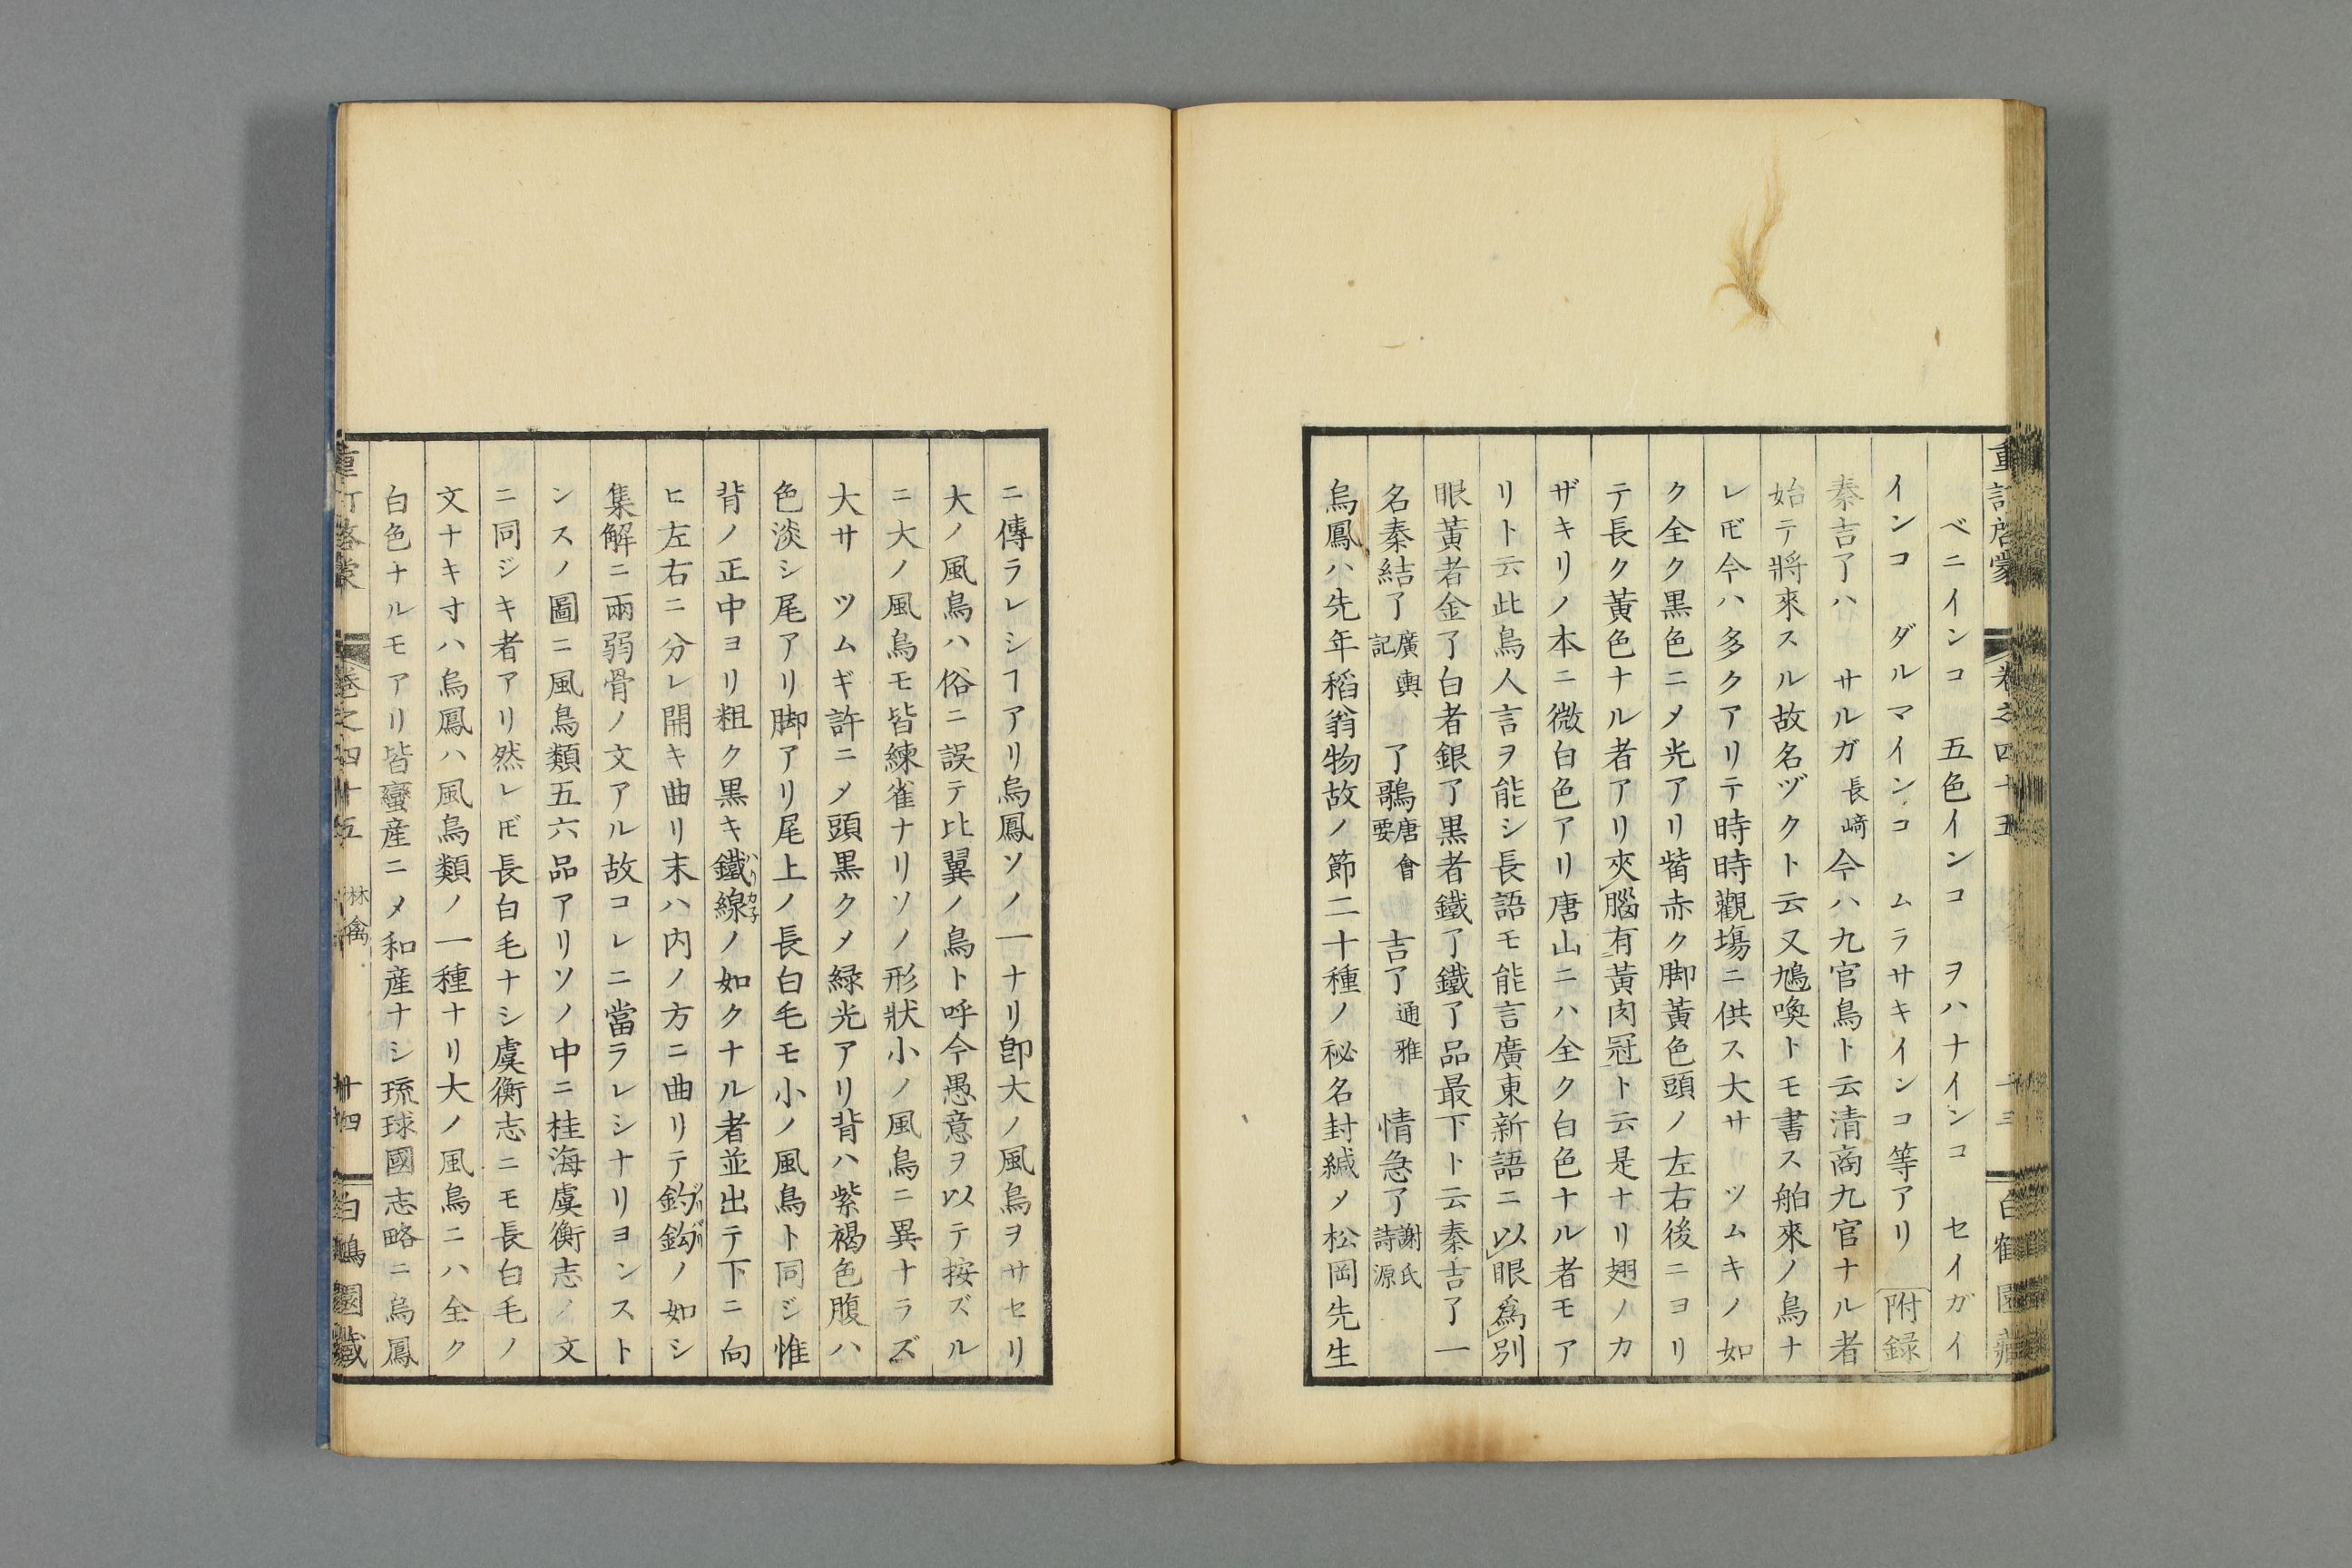 重訂啓蒙 卷之四十五 白鶴園藏
ベニインコ 五色インコ ヲハナインコ セイガイ
インコ ダルマインコ ムラサキインコ等アリ 附録
秦吉了ハ サルガ 長崎 今ハ九官鳥ト云清商九官ナル者
始テ將來スル故名ヅクト云又鳩喚トモ書ス舶來ノ鳥ナ
レ𪜈今ハ多クアリテ時時觀塲ニ供ス大サ ツムキノ如
ク全ク黒色ニメ光アリ觜赤ク脚黃色頭ノ左右後ニヨリ
テ長ク黃色ナル者アリ夾腦有黃肉冠ト云是ナリ翅ノカ
ザキリノ本ニ微白色アリ唐山ニハ全ク白色ナル者モア
リト云此鳥人言ヲ能シ長語モ能言廣東新語ニ以眼爲別
眼黃者金了白者銀了黒者鐵了鐵了品最下ト云秦吉了一
名秦結了 廣輿記 了鷊 唐會要 吉了 通雅 情急了 謝氏詩源
烏鳳ハ先年稻翁物故ノ節二十種ノ秘名封緘メ松岡先生
ニ傳ラレシヿアリ烏鳳ソノ一ナリ卽大ノ風鳥ヲサセリ
大ノ風鳥ハ俗ニ誤テ比翼ノ鳥ト呼今愚意ヲ以テ按ズル
ニ大ノ風鳥モ皆練雀ナリソノ形狀小ノ風鳥ニ異ナラズ
大サ ツムギ許ニメ頭黒クメ緑光アリ背ハ紫褐色腹ハ
色淡シ尾アリ脚アリ尾上ノ長白毛モ小ノ風鳥ト同ジ惟
背ノ正中ヨリ粗ク黒キ鐵線ノ如クナル者並出テ下ニ向
ヒ左右ニ分レ開キ曲リ末ハ内ノ方ニ曲リテ釣鈎ノ如シ
集解ニ兩弱骨ノ文アル故コレニ當ラレシナリヨンスト
ンスノ圖ニ風鳥類五六品アリソノ中ニ桂海虞衡志ノ文
ニ同ジキ者アリ然レ𪜈長白毛ナシ虞衡志ニモ長白毛ノ
文ナキ寸ハ烏鳳ハ風鳥類ノ一種ナリ大ノ風鳥ニハ全ク
白色ナルモアリ皆蠻産ニメ和産ナシ琉球國志略ニ烏鳳
重訂啓蒙 卷之四十五 林禽 廿四